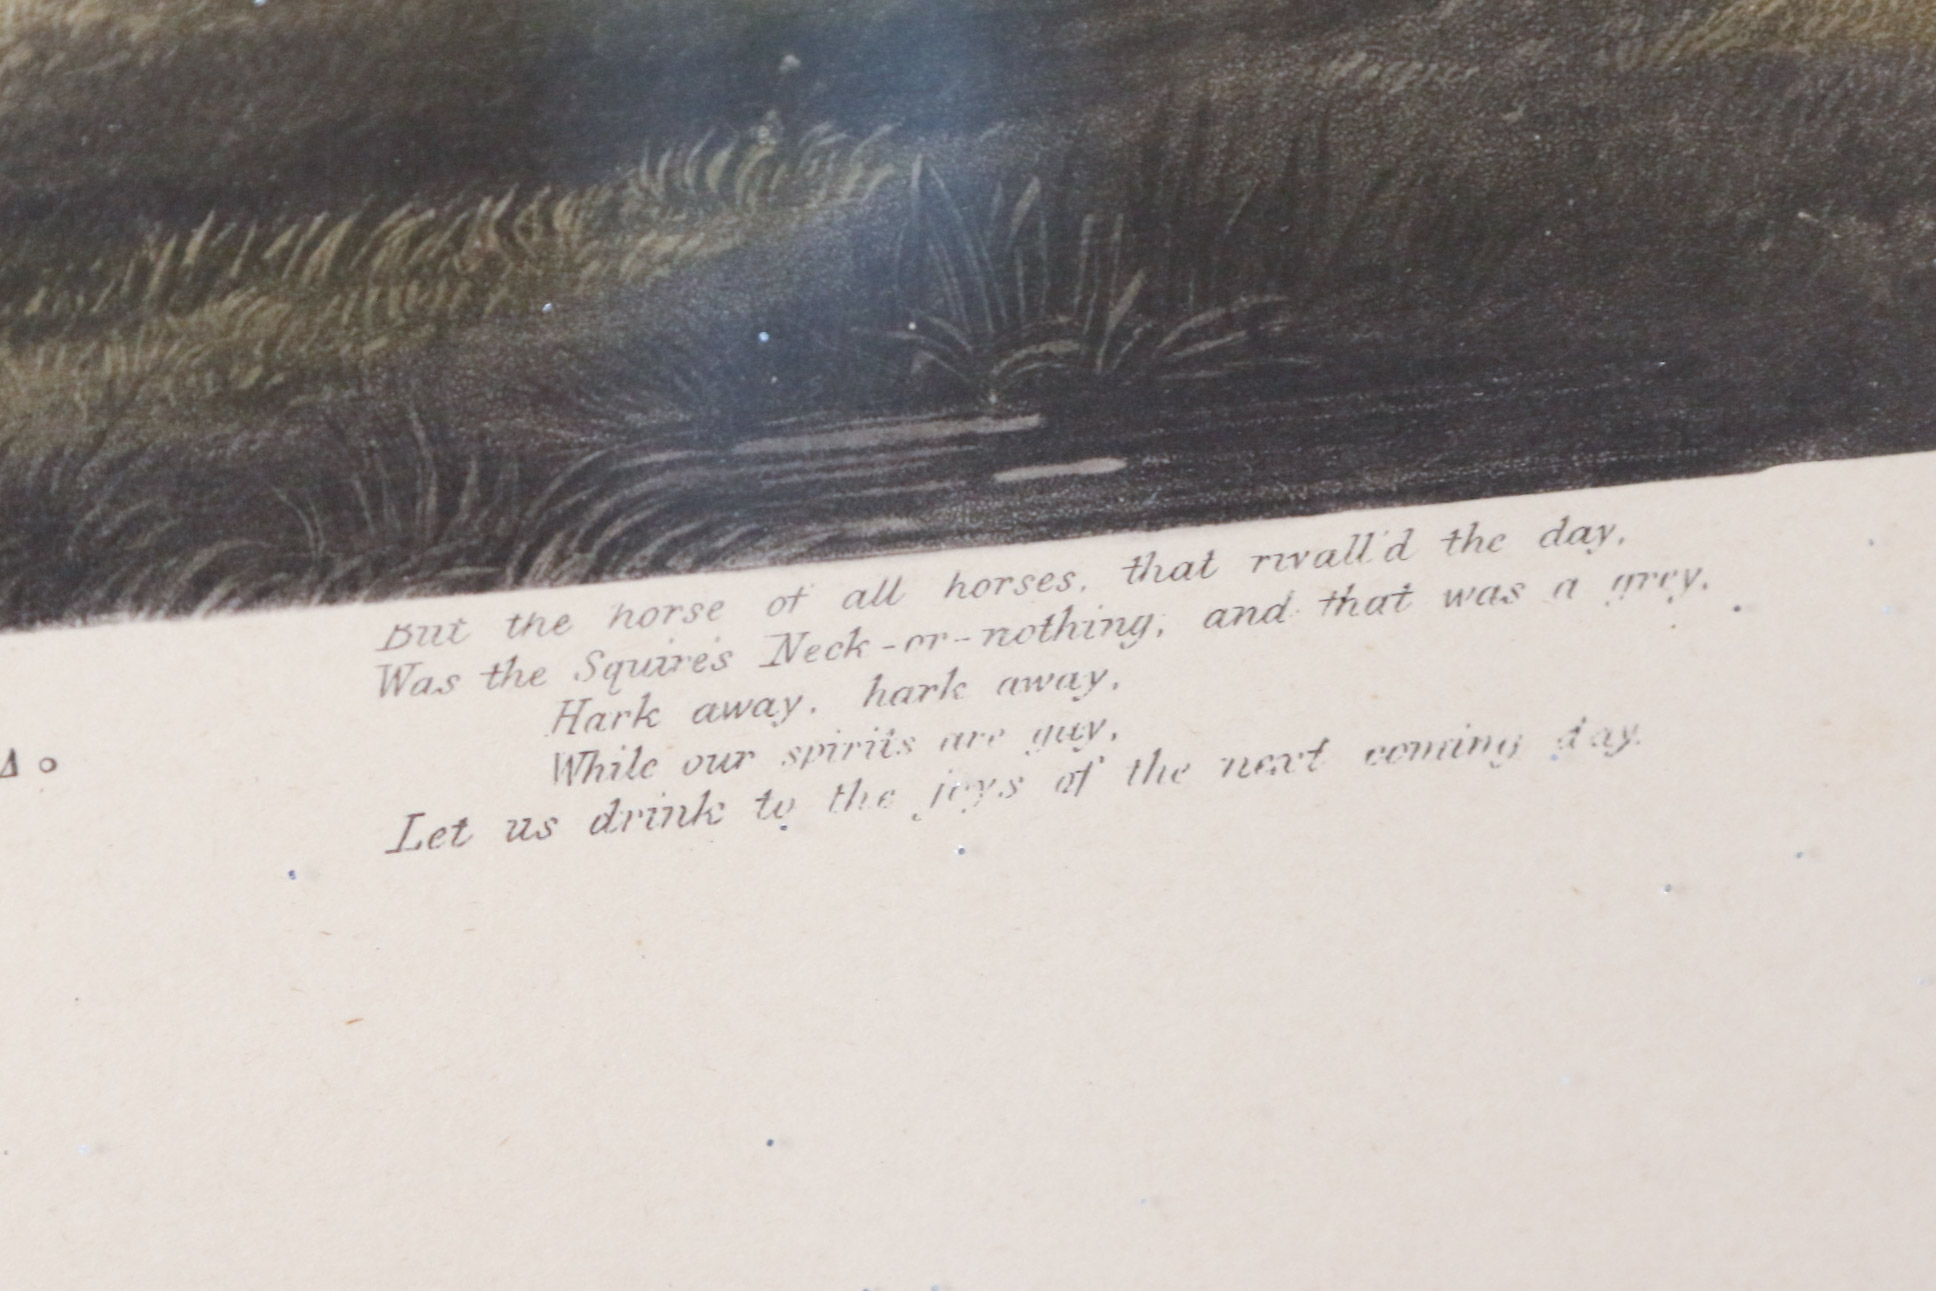 But the horse of all horses, that rivall'd the day,
Was the Squire's Neck-or-nothing, and that was a grey.
Hark away, hark away,
While our spirits are gay,
Let us drink to the joys of the next coming day.